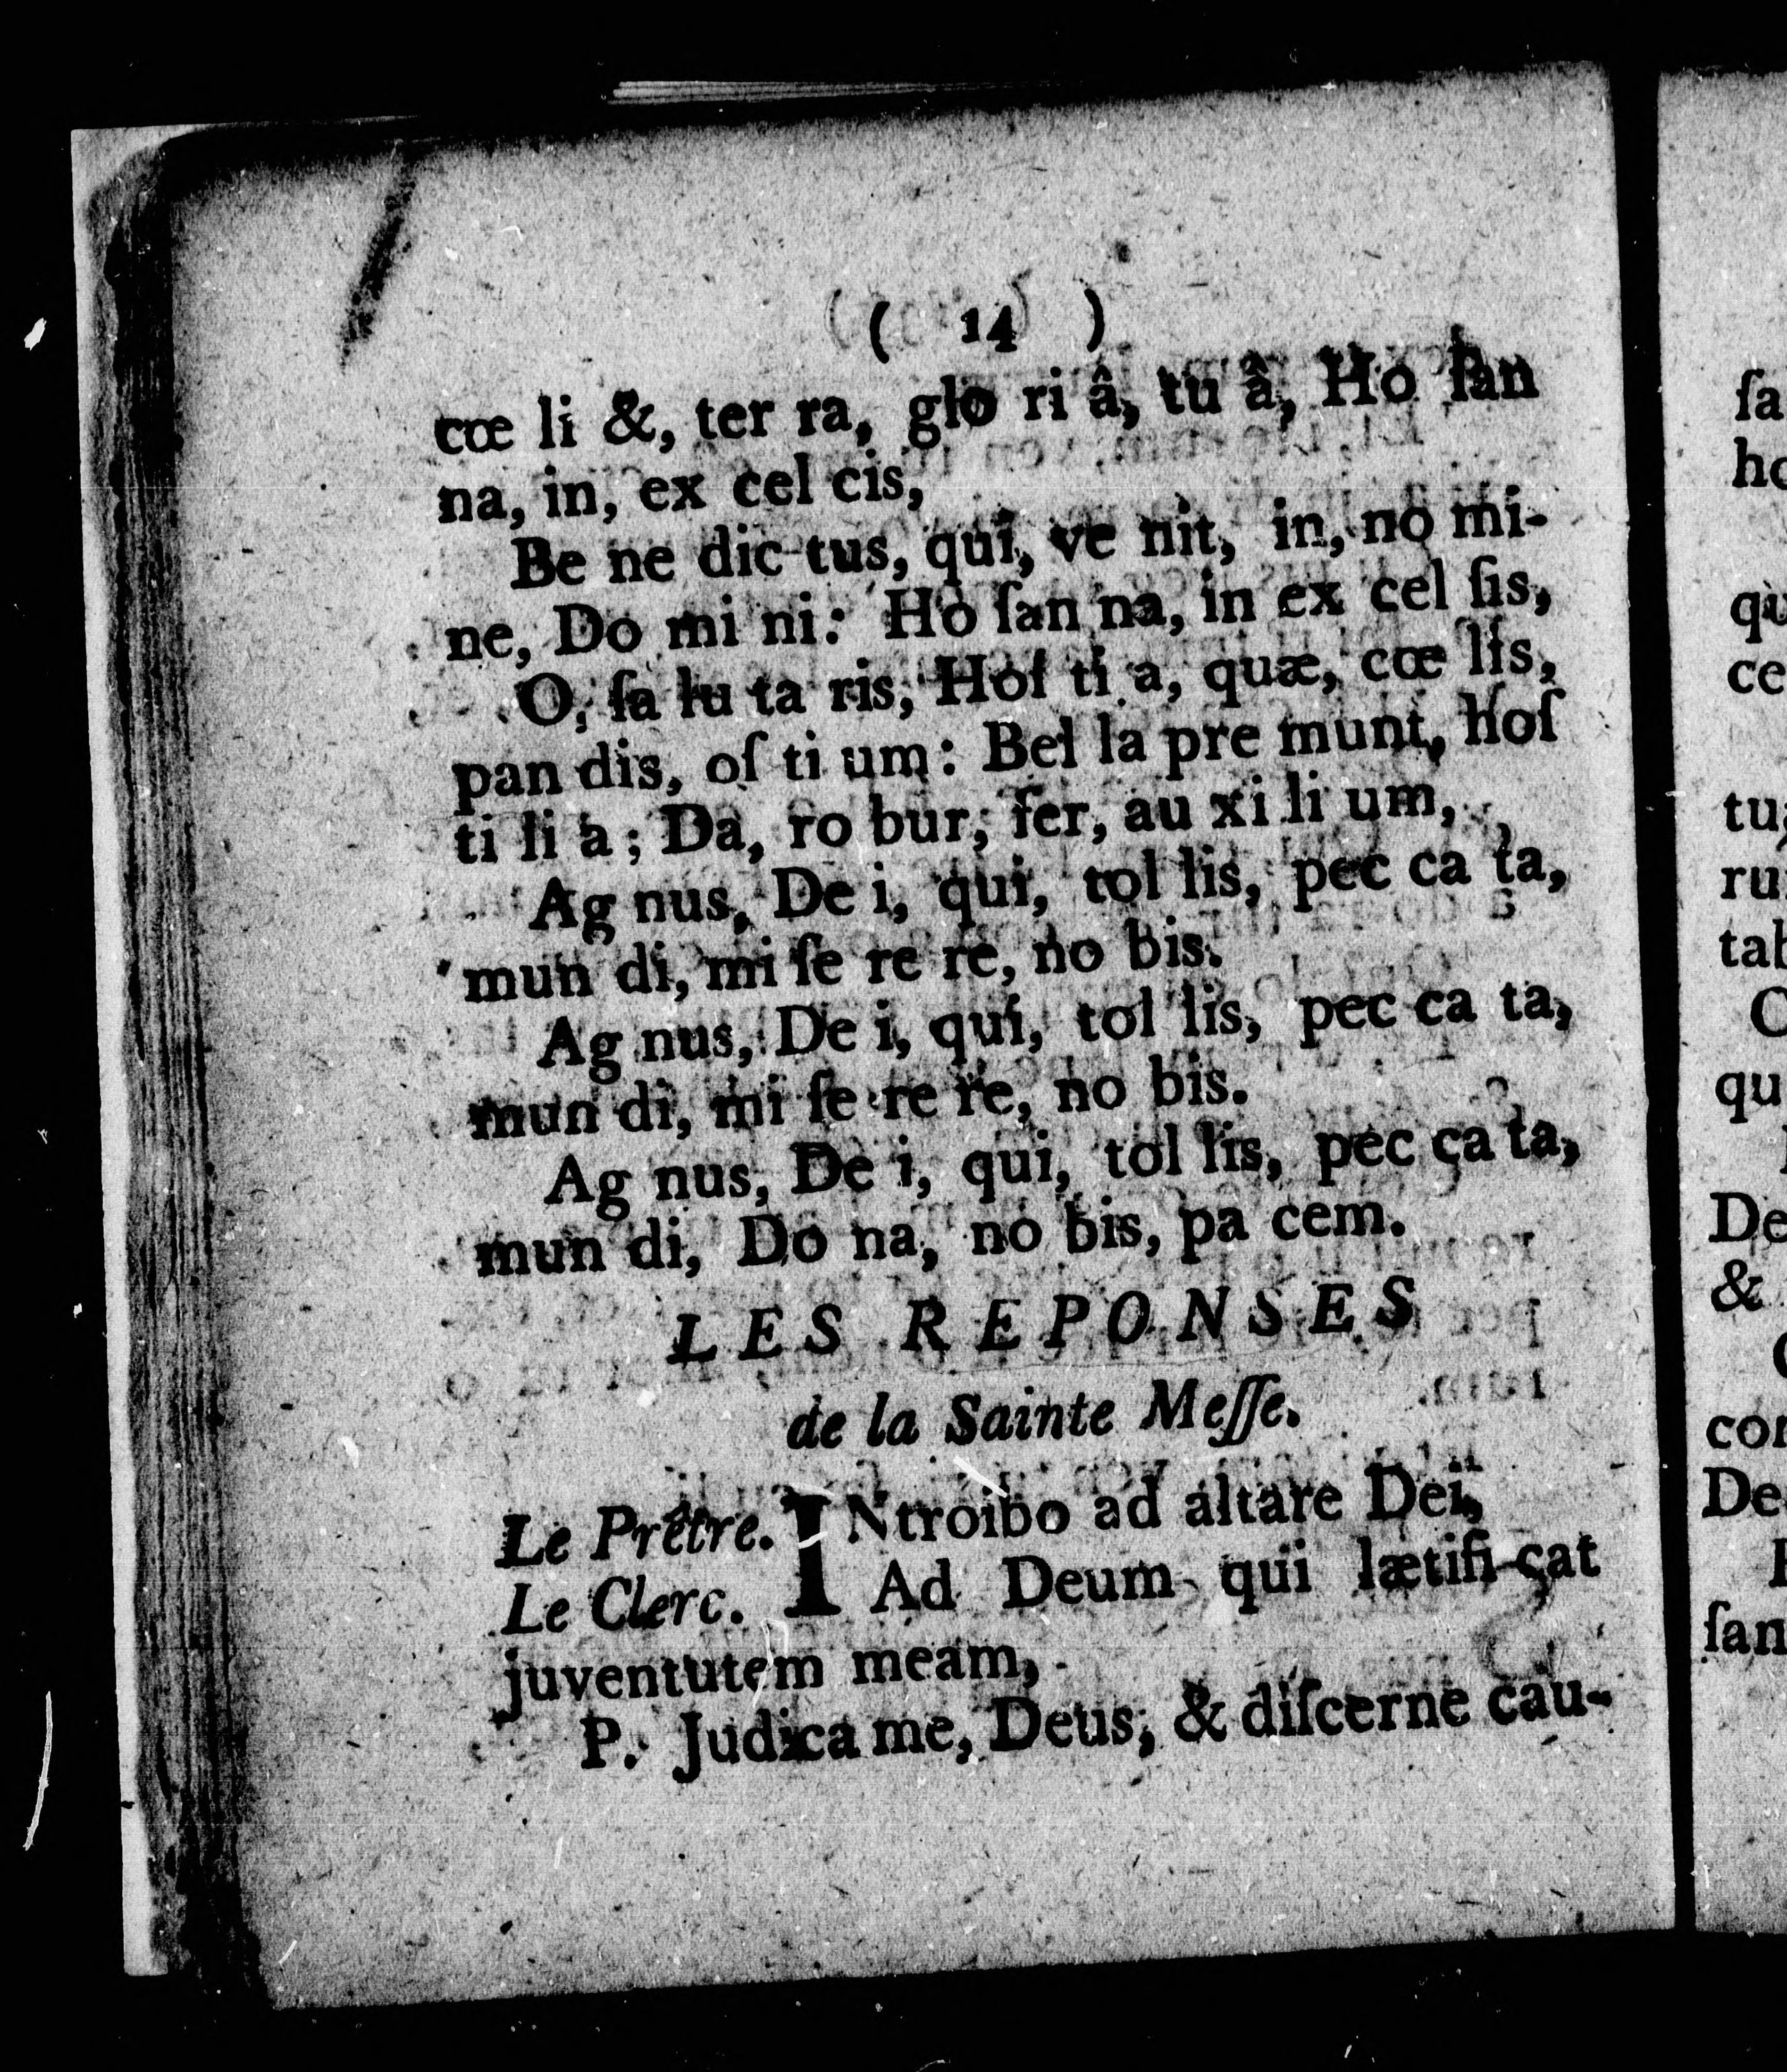 ( 14 )
cœ li &, ter ra, glo ri â, tu â, Ho ſan
na, in, ex cel cis,
Be ne dic tus, qui, ve nit, in, no mi-
ne, Do mi ni: Ho ſan na, in ex cel ſis,
O, ſa lu ta ris, Hoſ ti a, quæ, cœ lis,
pan dis, oſ ti um: Bel la pre munt, hoſ
ti li a; Da, ro bur, fer, au xi li um,
Ag nus, De i, qui, tol lis, pec ca ta,
mun di, mi ſe re re, no bis.
Ag nus, De i, qui, tol lis, pec ca ta,
mun di, mi ſe re re, no bis.
Ag nus, De i, qui, tol lis, pec ca ta,
mun di, Do na, no bis, pa cem.
LES REPONSES
de la Sainte Meſſe.
Le Prêtre. INtroibo ad altare Dei,
Le Clerc. Ad Deum qui lætifi cat
juventutem meam,
P. Judica me, Deus, & diſcerne cau-
ſa
ho
qu
ce
tu
ru
tab
qu
De
&
con
De
ſan